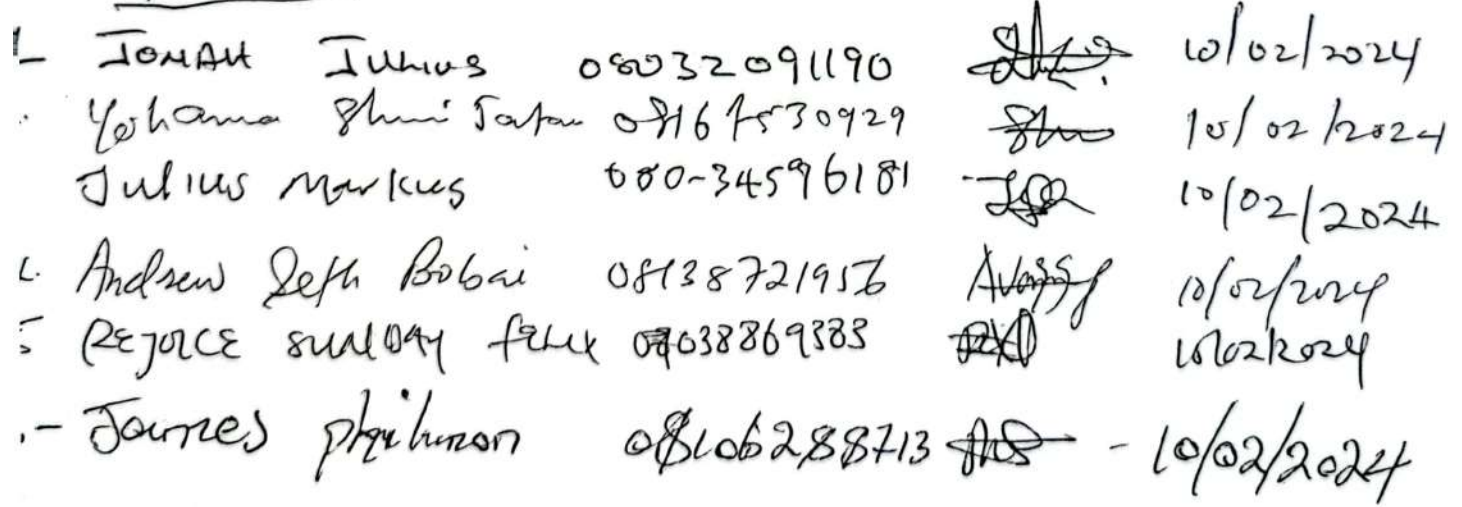 1- JONAH JULIUS 08032091190 10/02/2024
Yohanna Shuni Tatau 08167530929 10/02/2024
Julius Markus 080-34596181 10/02/2024
Andrew Seth Bobai 08138721956 10/02/2024
5 REJOICE SUNDAY FELIX 07038869383 10/02/2024
- James philimon 08106288713 - 10/02/2024